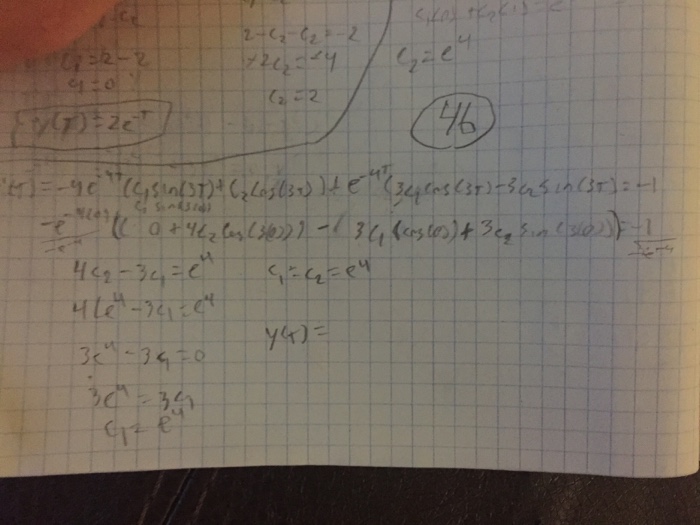 c₁ = 2 - 2
c₁ = 0
y(t) = 2e^-t
2 - c₂ - c₂ = -2
-2c₂ = -4
c₂ = 2
c₂ = e^4
46
'(t) = -4e^-4t (c₁ sin(3t) + c₂ cos(3t)) + e^-4t (3c₁ cos(3t) - 3c₂ sin(3t)) = -1
c₁ sin(3(0))
-e^-4(0) (( 0 + 4c₂ cos(3(0))) - ( 3c₁ (cos(0)) + 3c₂ sin(3(0))) = -1
4c₂ - 3c₁ = e^4
c₁ = c₂ = e^4
4(e^4 - 3c₁ = e^4
y(t) =
3e^4 - 3c₁ = 0
3e^4 = 3c₁
c₁ = e^4